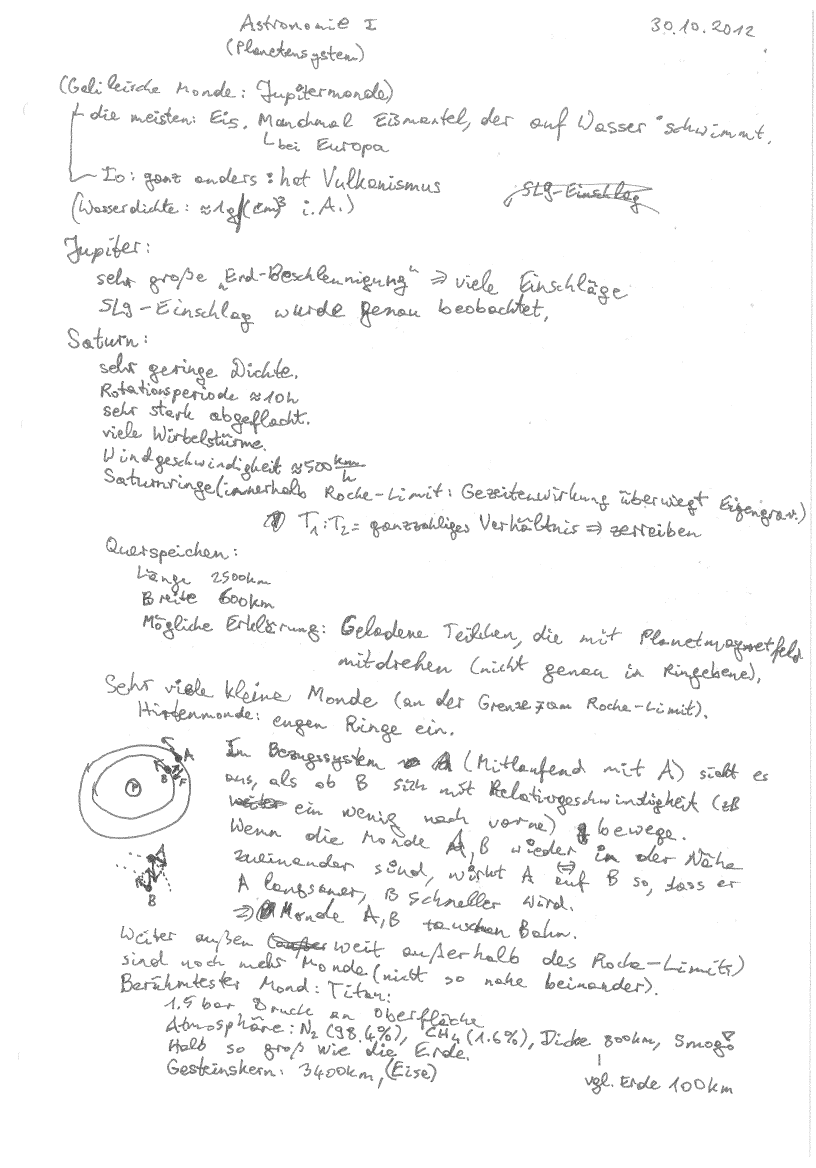 Astronomie I
30.10.2012
(Planetensystem)
(Galileische Monde: Jupitermonde)
die meisten: Eis. Manchmal Eismantel, der auf Wasser "schwimmt.
bei Europa
Io: ganz anders: hat Vulkanismus
SL9-Einschlag
(Wasserdichte: ≈1g/(cm)³ i.A.)
Jupiter:
sehr große "Erd-Beschleunigung" ⇒ viele Einschläge
SL9-Einschlag wurde genau beobachtet,
Saturn:
sehr geringe Dichte.
Rotationsperiode ≈10h
sehr stark abgeflacht.
viele Wirbelstürme.
Windgeschwindigkeit ≈500 km/h
Saturnringe (innerhalb Roche-Limit: Gezeitenwirkung überwiegt Eigengrav.)
T₁:T₂ = ganzzahliges Verhältnis ⇒ zerreiben
Querspeichen:
Länge 2500km
Breite 600km
Mögliche Erklärung: Geladene Teilchen, die mit Planetmagnetfeld
mitdrehen (nicht genau in Ringebene).
Sehr viele kleine Monde (an der Grenze zum Roche-Limit).
Hirtenmonde: engen Ringe ein.
A
B F
P
Im Bezugssystem A (Mitlaufend mit A) sieht es
aus, als ob B sich mit Relativgeschwindigkeit (zB
weiter ein wenig nach vorne) bewege.
Wenn die Monde A,B wieder in der Nähe
zueinander sind, wirkt A auf B so, dass er
A langsamer, B schneller wird.
⇒ Monde A,B tauschen Bahn.
A
B
Weiter außen (außer weit außerhalb des Roche-Limits)
sind noch mehr Monde (nicht so nahe beinander).
Berühmtester Mond: Titan:
1.5 bar Druck an Oberfläche
Atmosphäre: N₂ (98.4%), CH₄ (1.6%), Dicke 800km, Smog
Halb so groß wie die Erde.
Gesteinskern: 3400km, (Eise)
vgl. Erde 100km